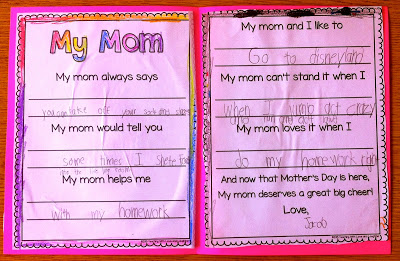 My Mom
My mom always says
you can take off your socks and shoes
My mom would tell you
some times I
My mom helps me
with my homework
My mom and I like to
Go to disneyland
My mom can't stand it when I
when I jump act crazy
and run and
My mom loves it when I
do my homework
And now that Mother's Day is here,
My mom deserves a great big cheer!
Love,
Jacob